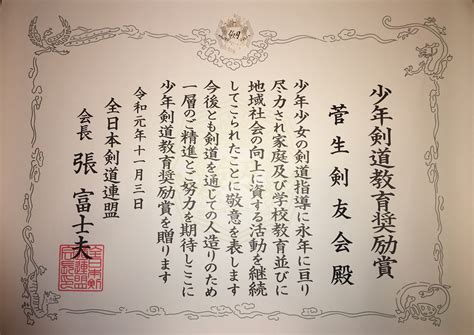 少年剣道教育奨励賞
菅生剣友会殿
少年少女の剣道指導に永年に亘り
尽力され家庭及び学校教育並びに
地域社会の向上に資する活動を継続
してこられたことに敬意を表します
今後とも剣道を通じての人造りのため
一層のご精進とご努力を期待しここに
少年剣道教育奨励賞を贈ります
令和元年十一月三日
全日本剣道連盟
会長 張富士夫